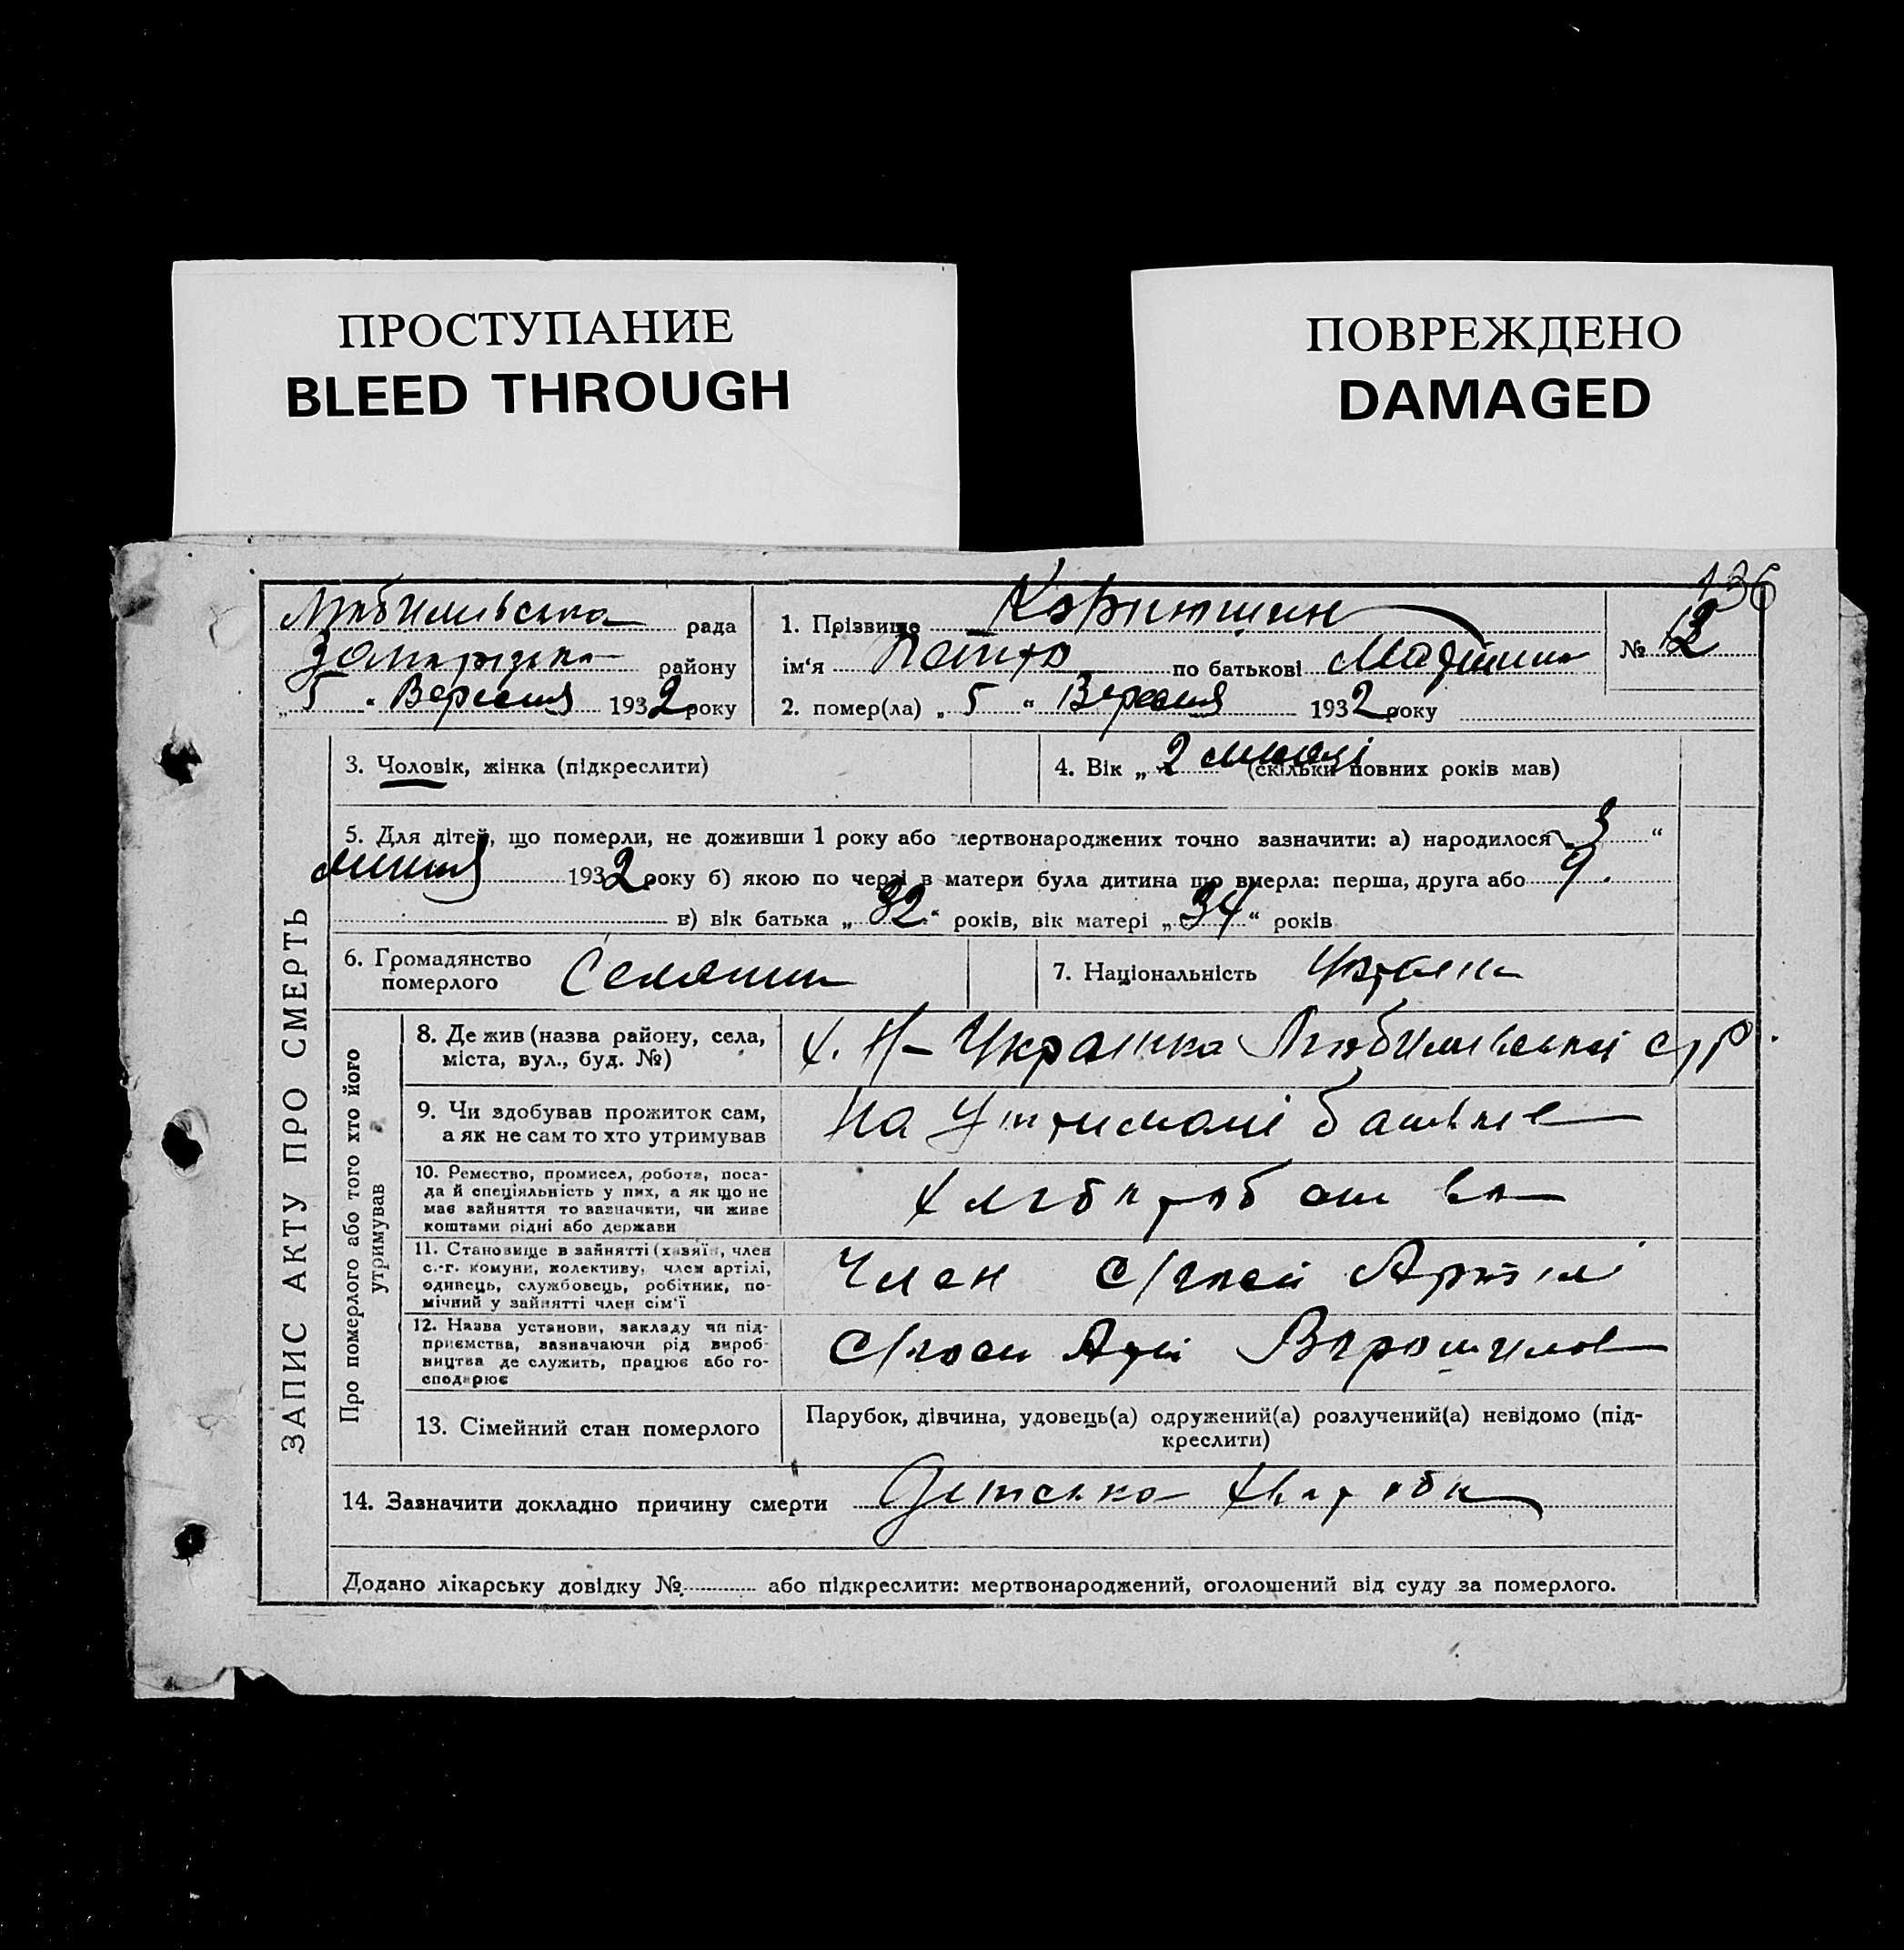 ПРОСТУПАНИЕ
BLEED THROUGH
ПОВРЕЖДЕНО
DAMAGED
136
рада
району
„5“ Вересня 1932 року
1. Прізвище
ім‘я Петро по батькові
№
2. помер(ла) „5“ Вересня 1932 року
ЗАПИС АКТУ ПРО СМЕРТЬ
3. Чоловік, жінка (підкреслити)
4. Вік „2 місяці (скільки повних років мав)
5. Для дітей, що померли, не доживши 1 року або мертвонароджених точно зазначити: а) народилося „3“
липня 1932 року б) якою по черзі в матери була дитина що вмерла: перша, друга або 9.
в) вік батька „32“ років, вік матері „34“ років
6. Громадянство
померлого
Селянин
7. Національність
Про померлого або того хто його
утримував
8. Де жив (назва району, села,
міста, вул., буд. №)
х. Н-Українка Любимівської с/р.
9. Чи здобував прожиток сам,
а як не сам то хто утримував
На утриманні батьків
10. Ремество, промисел, робота, поса-
да й спеціяльність у них, а як що не
має зайняття то зазначити, чи живе
коштами рідні або держави
Хліборобство
11. Становище в зайнятті (хазяїн, член
с.-г. комуни, колективу, член артілі,
одинець, службовець, робітник, по-
мічний у зайнятті член сім‘ї
Член с/госп Артілі
12. Назва установи, закладу чи під-
приємства, зазначаючи рід вироб-
ництва де служить, працює або го-
сподарює
С/госп Арті Ворошилов
13. Сімейний стан померлого
Парубок, дівчина, удовець(а) одружений(а) розлучений(а) невідомо (під-
креслити)
14. Зазначити докладно причину смерти Детська хвороба
Додано лікарську довідку № або підкреслити: мертвонароджений, оголошений від суду за померлого.